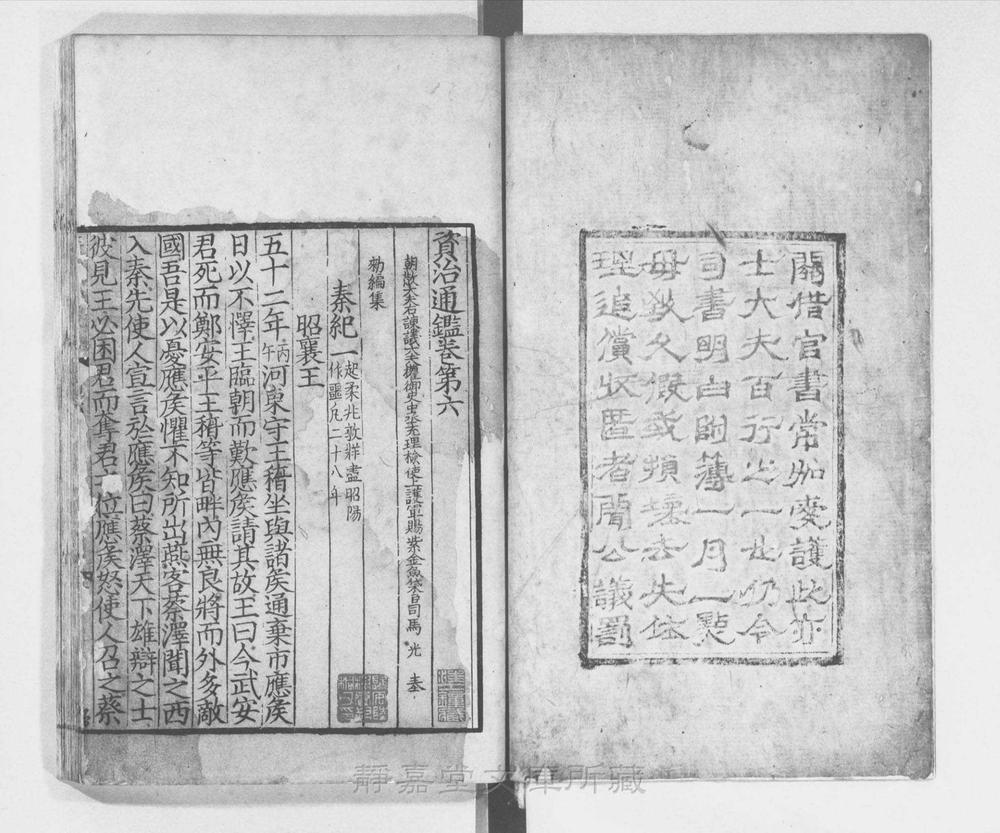 關借官書常加愛護此亦
士大夫百行之一也仍令
司書明白附簿一月一點
毋致久假或損壞去失依
理追償收匿者聞公議罰
資治通鑑卷第六
朝散大夫右諫議大夫權御史中丞充理檢使上護軍賜紫金魚袋臣司馬 光 奉
勑編集
秦紀一 起柔兆敦牂盡昭陽
作噩凡二十八年
昭襄王
五十二年丙午河東守王稽坐與諸侯通棄市應侯
日以不懌王臨朝而歎應侯請其故王曰今武安
君死而鄭安平王稽等皆畔內無良將而外多敵
國吾是以憂應侯懼不知所出燕客蔡澤聞之西
入秦先使人宣言於應侯曰蔡澤天下雄辯之士
彼見王必困君而奪君位應侯怒使人召之蔡
靜嘉堂文庫所藏